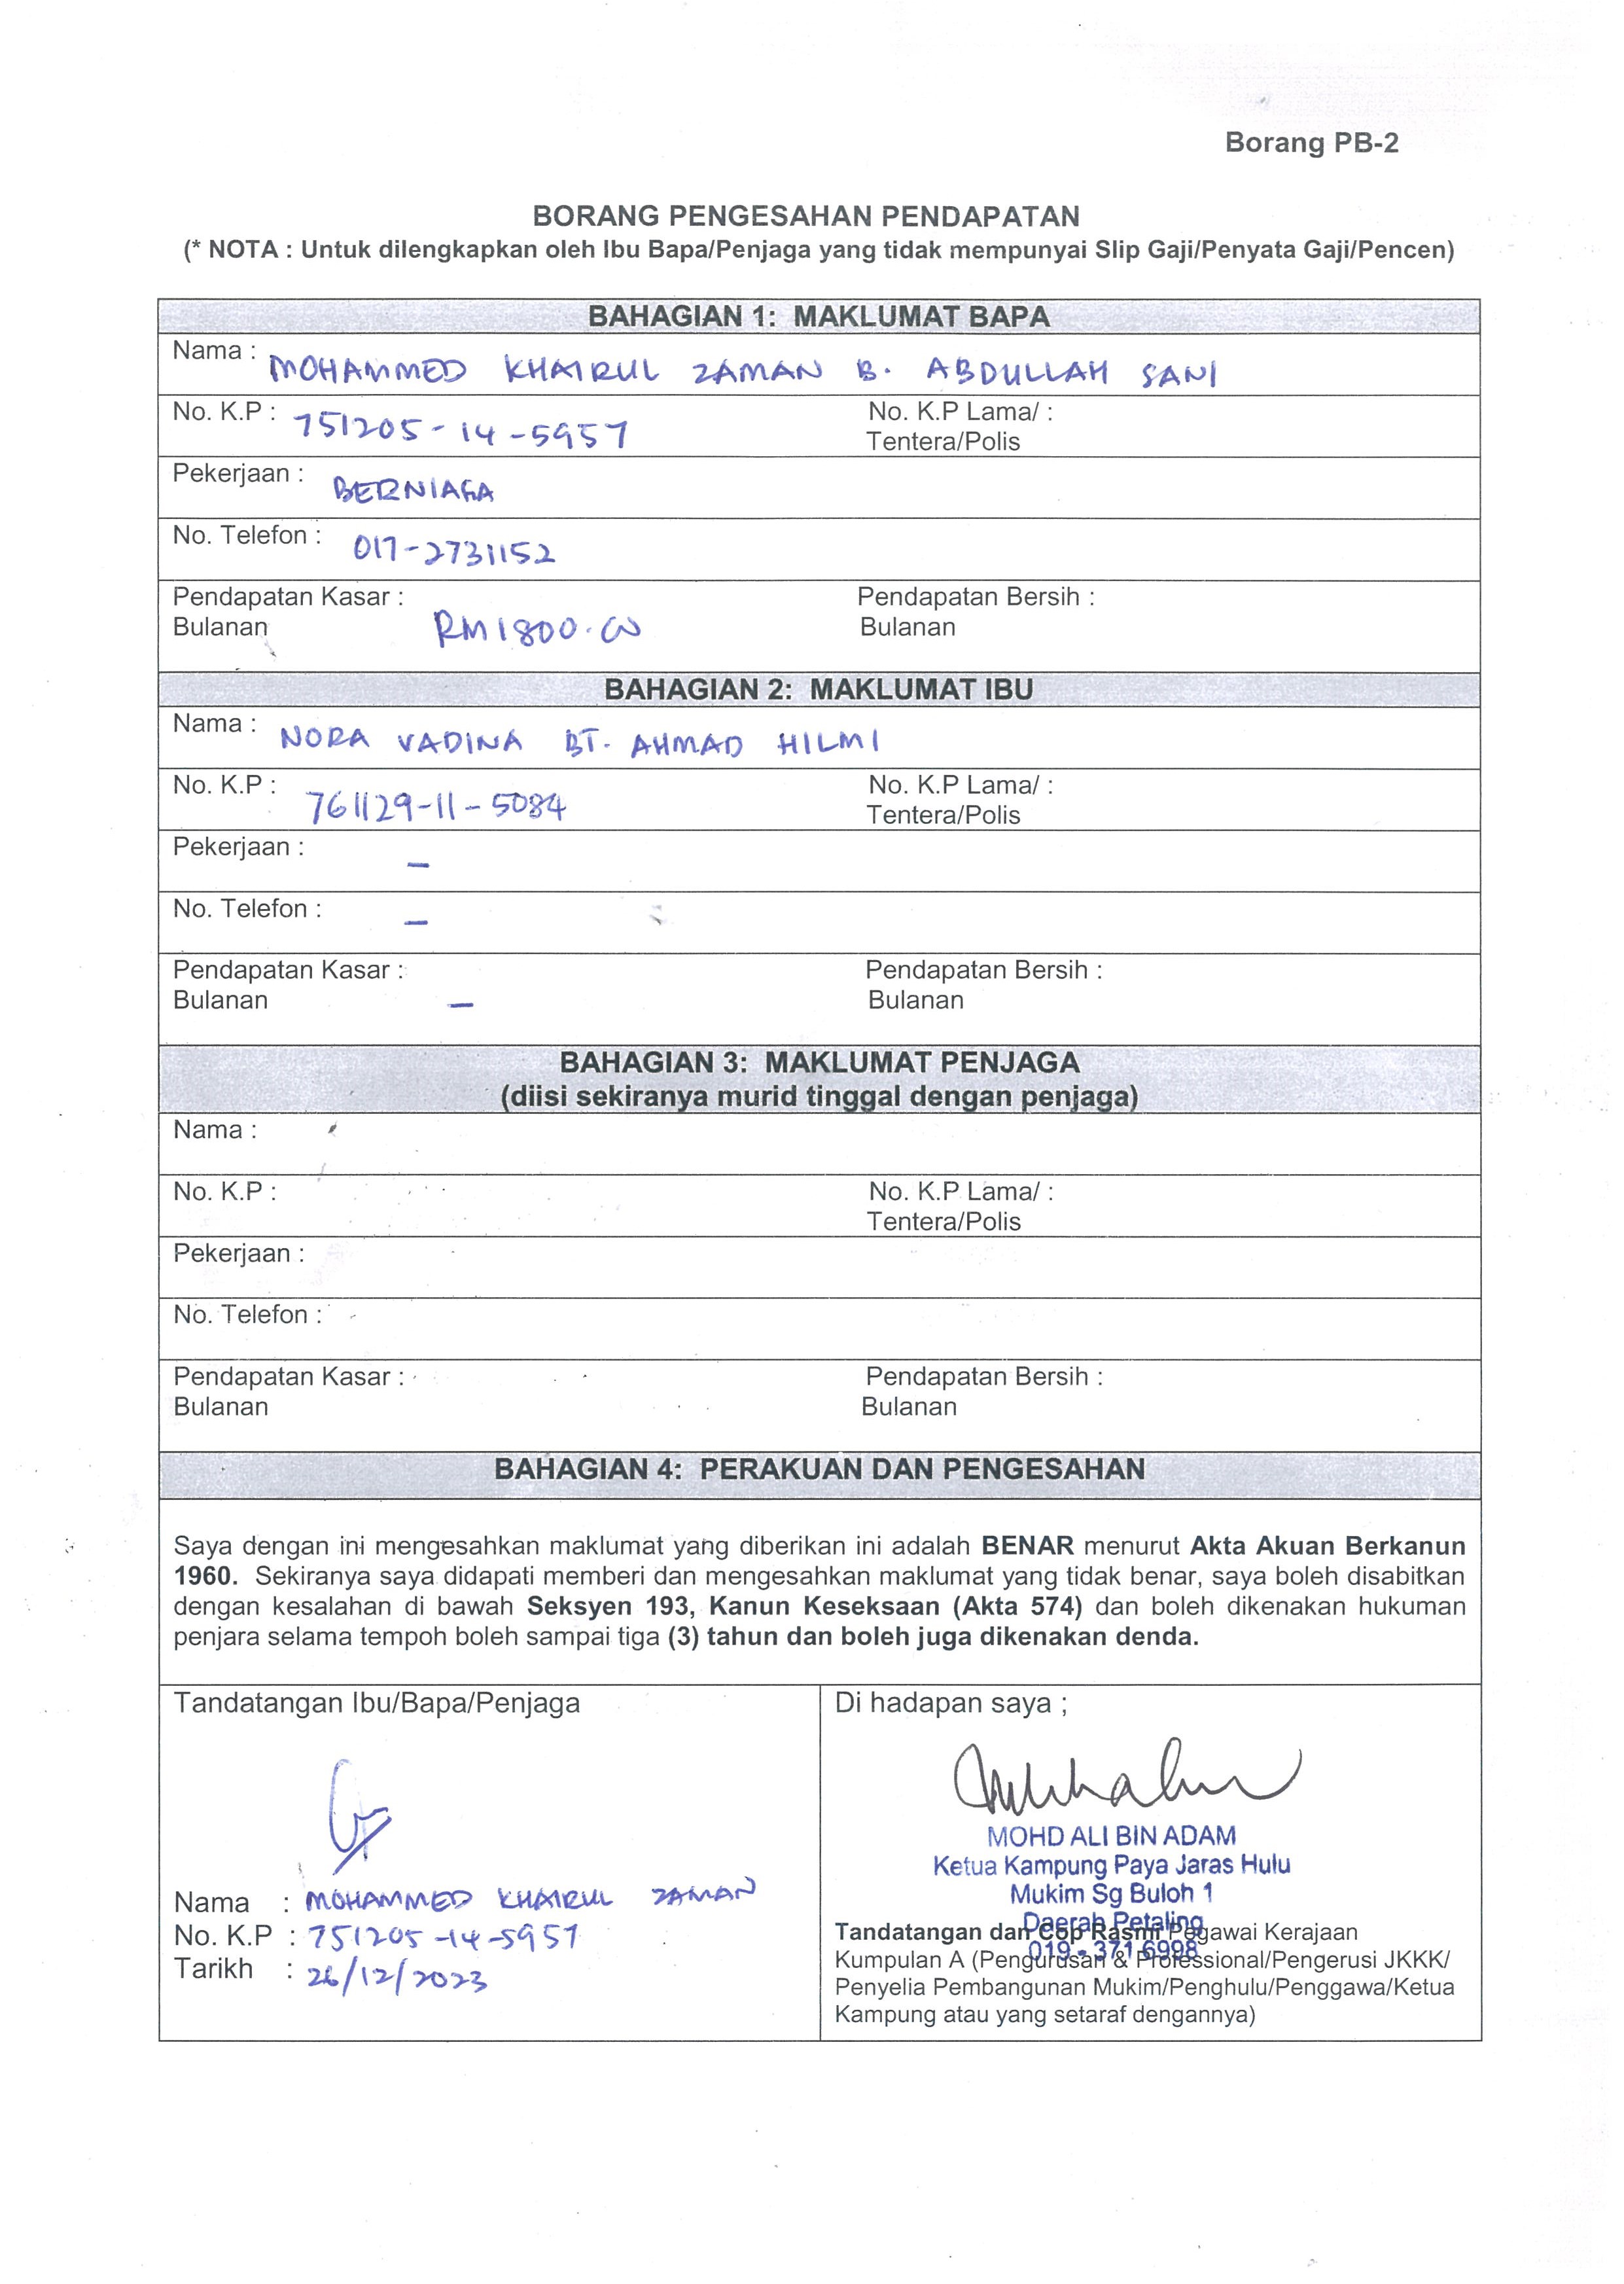 Borang PB-2
BORANG PENGESAHAN PENDAPATAN
(* NOTA : Untuk dilengkapkan oleh Ibu Bapa/Penjaga yang tidak mempunyai Slip Gaji/Penyata Gaji/Pencen)
BAHAGIAN 1: MAKLUMAT BAPA
Nama : MOHAMMED KHAIRUL ZAMAN B. ABDULLAH SANI
No. K.P : 751205-14-5957 No. K.P Lama/ :
Tentera/Polis
Pekerjaan : BERNIAGA
No. Telefon : 017-2731152
Pendapatan Kasar : Pendapatan Bersih :
Bulanan RM1800.00 Bulanan
BAHAGIAN 2: MAKLUMAT IBU
Nama : NORA VADINA BT. AHMAD HILMI
No. K.P : 761129-11-5084 No. K.P Lama/ :
Tentera/Polis
Pekerjaan : –
No. Telefon : –
Pendapatan Kasar : Pendapatan Bersih :
Bulanan – Bulanan
BAHAGIAN 3: MAKLUMAT PENJAGA
(diisi sekiranya murid tinggal dengan penjaga)
Nama :
No. K.P : No. K.P Lama/ :
Tentera/Polis
Pekerjaan :
No. Telefon :
Pendapatan Kasar : Pendapatan Bersih :
Bulanan Bulanan
BAHAGIAN 4: PERAKUAN DAN PENGESAHAN
Saya dengan ini mengesahkan maklumat yang diberikan ini adalah BENAR menurut Akta Akuan Berkanun
1960. Sekiranya saya didapati memberi dan mengesahkan maklumat yang tidak benar, saya boleh disabitkan
dengan kesalahan di bawah Seksyen 193, Kanun Keseksaan (Akta 574) dan boleh dikenakan hukuman
penjara selama tempoh boleh sampai tiga (3) tahun dan boleh juga dikenakan denda.
Tandatangan Ibu/Bapa/Penjaga
Nama : MOHAMMED KHAIRUL ZAMAN
No. K.P : 751205-14-5957
Tarikh : 26/12/2023
Di hadapan saya ;
MOHD ALI BIN ADAM
Ketua Kampung Paya Jaras Hulu
Mukim Sg Buloh 1
Daerah Petaling
019 - 371 6998
Tandatangan dan Cop Rasmi Pegawai Kerajaan
Kumpulan A (Pengurusan & Professional/Pengerusi JKKK/
Penyelia Pembangunan Mukim/Penghulu/Penggawa/Ketua
Kampung atau yang setaraf dengannya)